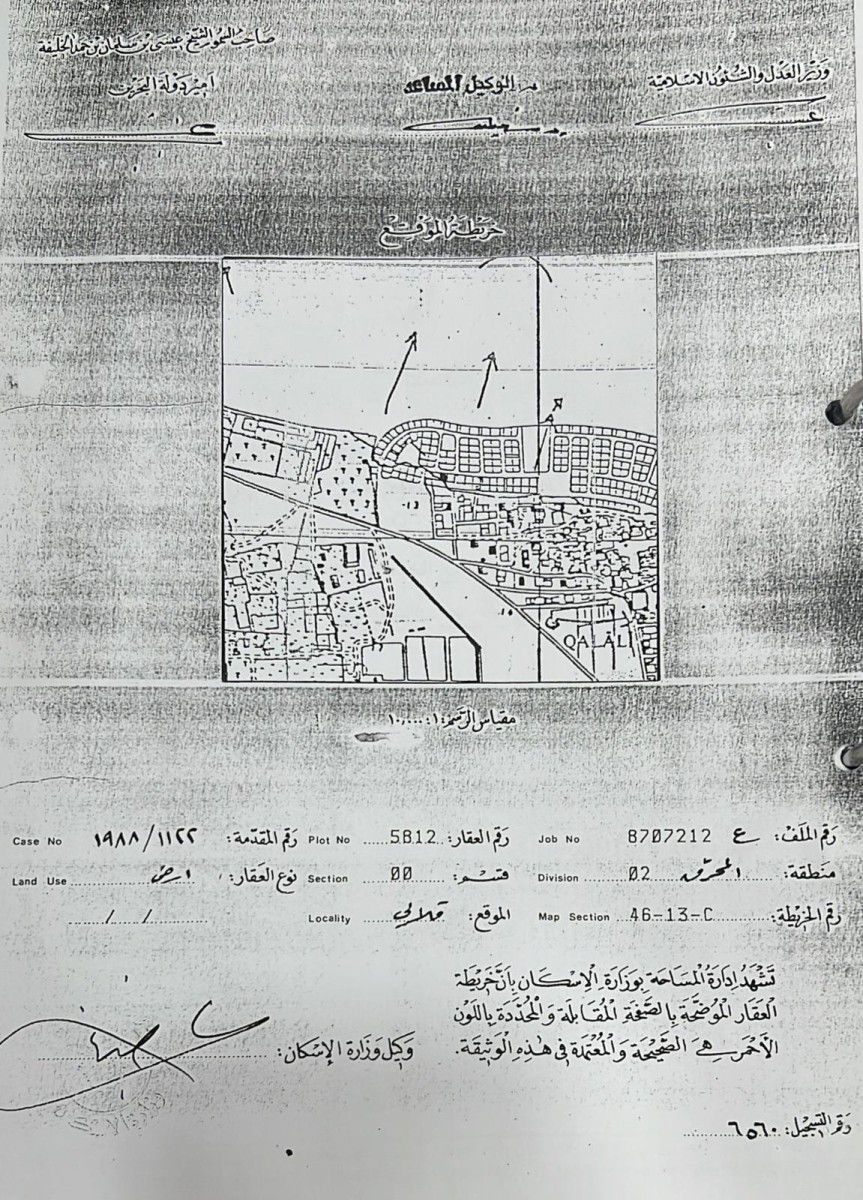 صاحب السمو الشيخ عيسى بن سلمان بن حمد الخليفة
أمير دولة البحرين
الوكيل المساعد
وزير العدل والشئون الاسلامية
خريطة الموقع
-١٣
QALALI
مقياس الرسم: ١:١٠,٠٠٠
رقم الملف: ع 8707212 Job No رقم العقار: 5812 Plot No رقم المقدمة: ١٩٨٨/١١٢٢ Case No
منطقة: المحرق 02 Division قسم: 00 Section نوع العقار: ارض Land Use
رقم الخريطة: 46-13-C Map Section الموقع: قلالي Locality / /
تشهد إدارة المساحة بوزارة الإسكان بأن خريطة
العقار الموضحة بالصفحة المقابلة والمحددة باللون
الأحمر هي الصحيحة والمعتمدة في هذه الوثيقة.
وكيل وزارة الإسكان:
رقم التسجيل: ٦٥٦٠